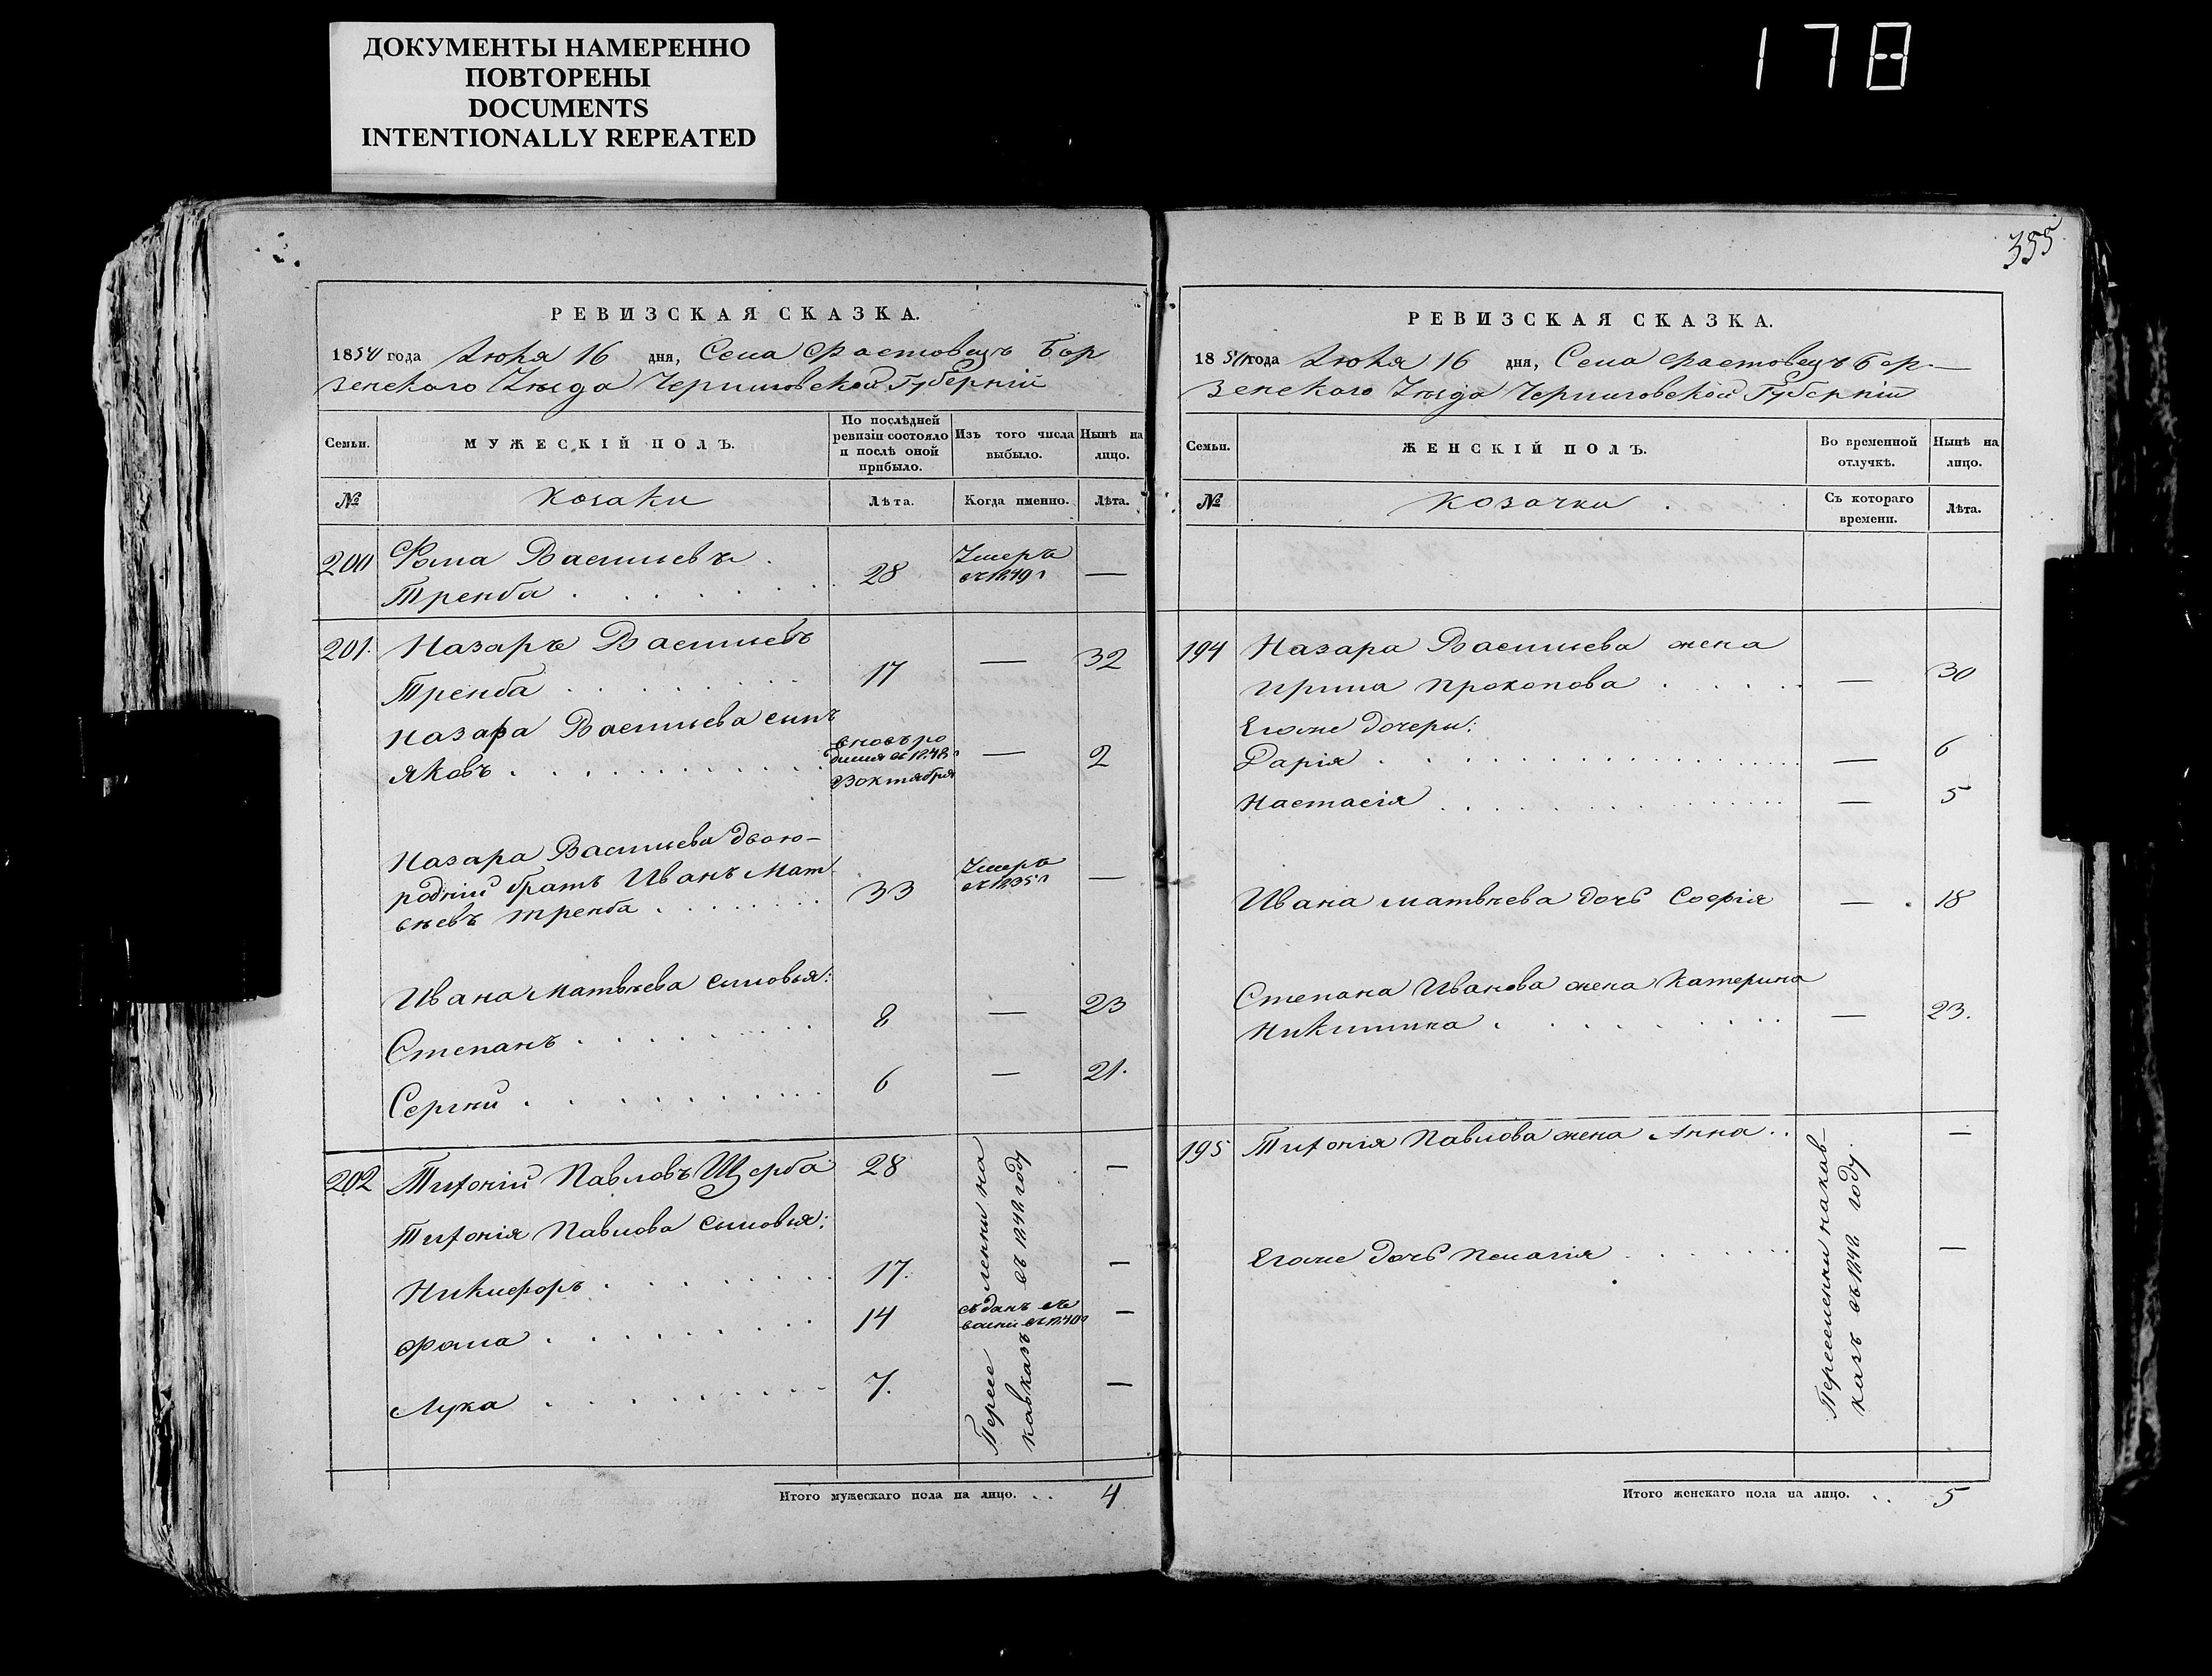 ДОКУМЕНТЫ НАМЕРЕННО
ПОВТОРЕНЫ
DOCUMENTS
INTENTIONALLY REPEATED
178
РЕВИЗСКАЯ СКАЗКА.
1850 года Июня 16 дня, Села Фастовецъ Бор
зенскаго Уезда Черниговской Губерніи
Семьи.
МУЖЕСКІЙ ПОЛЪ.
По послѣдней
ревизіи состояло
и послѣ оной
прибыло.
Изъ того числа
выбыло.
Нынѣ на
лицо.
№
Козаки
Лѣта.
Когда именно.
Лѣта.
200 Фома Васильевъ
Тренба 28 Умеръ
въ 1849 г —
201. Назаръ Васильевъ
Тренба 17 — 32
Назара Васильева сынъ
Яковъ вновь ро
въ 1848
октября — 2
Назара Васильева двою-
родній братъ Иванъ Мат
вѣевъ Тренба 33 Умеръ
въ 1835 г —
Ивана Матвѣева сыновья:
Степанъ 8 — 23
Сергій 6 — 21.
202 Тихоній Павловъ Щерба 28 —
Тихонія Павлова сыновья:
Никифоръ 17. —
Фома 14 —
Лука 7. —
Пересе ленни на
кавказъ въ 184 году
Итого мужескаго пола на лицо. 4
355
РЕВИЗСКАЯ СКАЗКА.
1850 года Июня 16 дня, Села Фастовецъ Бор-
зенскаго Уезда Черниговской Губерніи
Семьи.
ЖЕНСКІЙ ПОЛЪ.
Во временной
отлучкѣ.
Нынѣ на
лицо.
№
Козачки
Съ котораго
времени.
Лѣта.
194 Назара Васильева жена
Ирина Прокопова — 30
Егоже дочери:
Дарія — 6
Настасія — 5
Ивана Матвѣева дочь Софія — 18
Степана Иванова жена Катерина
Никитина — 23.
195 Тихонія Павлова жена Анна —
Егоже дочь Пелагія —
Переселенни на кав-
казъ въ 184 году.
Итого женскаго пола на лицо. 5